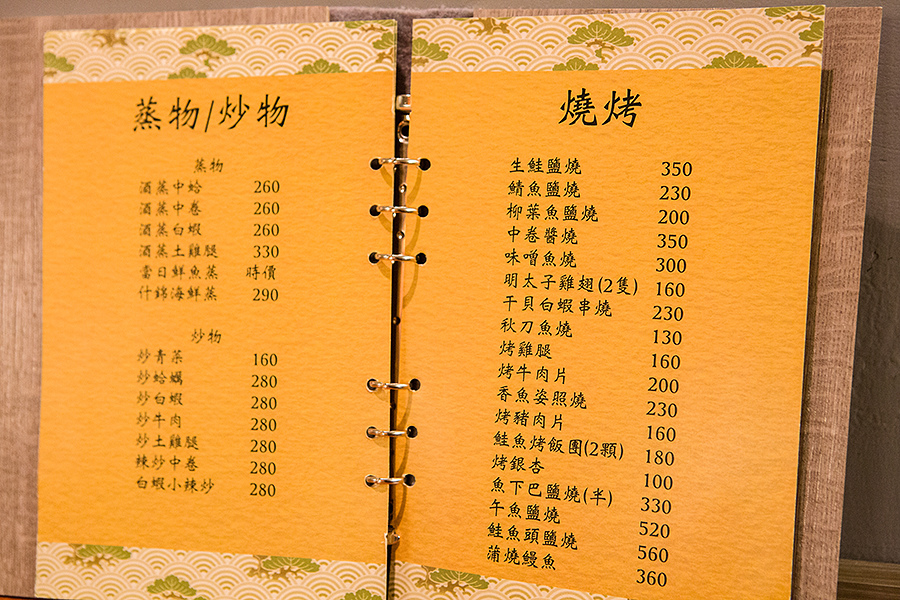 蒸物/炒物
蒸物
酒蒸中蛤 260
酒蒸中卷 260
酒蒸白蝦 260
酒蒸土雞腿 330
當日鮮魚蒸 時價
什錦海鮮蒸 290
炒物
炒青菜 160
炒蛤蠣 280
炒白蝦 280
炒牛肉 280
炒土雞腿 280
辣炒中卷 280
白蝦小辣炒 280
燒烤
生鮭鹽燒 350
鯖魚鹽燒 230
柳葉魚鹽燒 200
中卷醬燒 350
味噌魚燒 300
明太子雞翅(2隻) 160
干貝白蝦串燒 230
秋刀魚燒 130
烤雞腿 160
烤牛肉片 200
香魚姿照燒 230
烤豬肉片 160
鮭魚烤飯團(2顆) 180
烤銀杏 100
魚下巴鹽燒(半) 330
午魚鹽燒 520
鮭魚頭鹽燒 560
蒲燒鰻魚 360